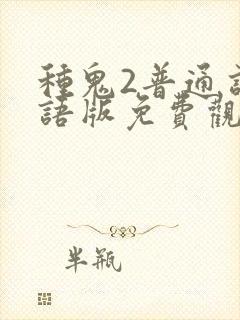 種鬼2普通
語版免費觀
半瓶